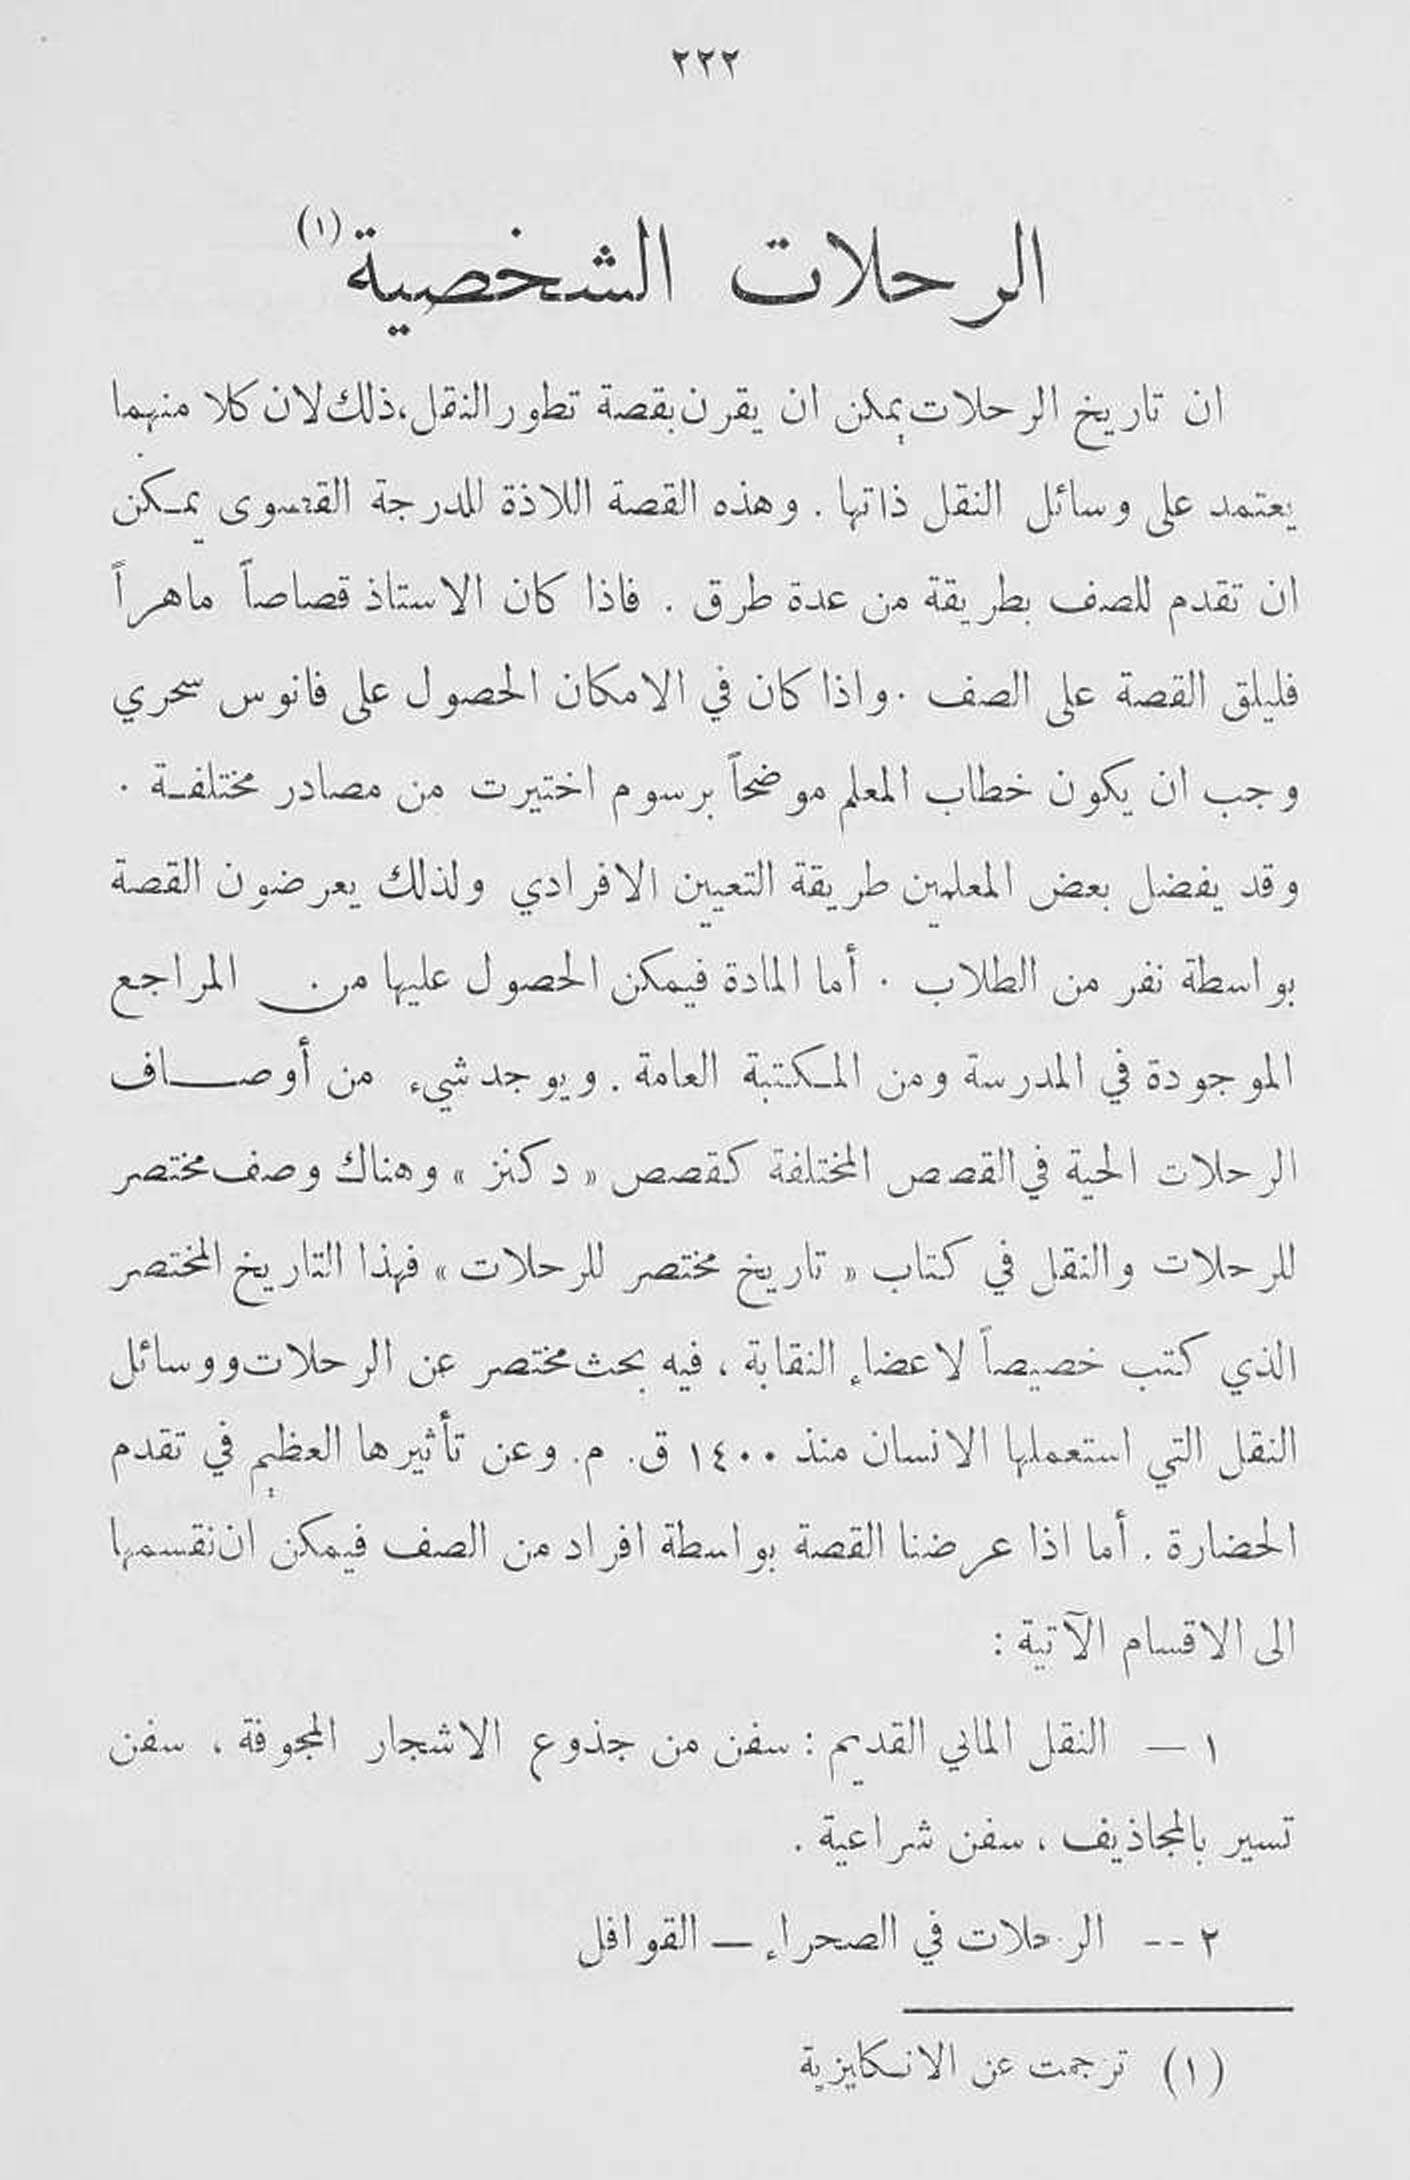 ٢٢٢
الرحلات الشخصية (١)
ان تاريخ الرحلات يمكن ان يقرن بقصة تطور النقل، ذلك لان كلا منهما
يعتمد على وسائل النقل ذاتها . وهذه القصة اللاذة للدرجة القصوى يمكن
ان تقدم للصف بطريقة من عدة طرق . فاذا كان الاستاذ قصاصاً ماهراً
فليلق القصة على الصف . واذا كان في الامكان الحصول على فانوس سحري
وجب ان يكون خطاب المعلم موضحاً برسوم اختيرت من مصادر مختلفة .
وقد يفضل بعض المعلمين طريقة التعيين الافرادي ولذلك يعرضون القصة
بواسطة نفر من الطلاب . أما المادة فيمكن الحصول عليها من المراجع
الموجودة في المدرسة ومن المكتبة العامة . ويوجد شيء من أوصاف
الرحلات الحية في القصص المختلفة كقصص « دكنز » وهناك وصف مختصر
للرحلات والنقل في كتاب « تاريخ مختصر للرحلات » فهذا التاريخ المختصر
الذي كتب خصيصاً لاعضاء النقابة ، فيه بحث مختصر عن الرحلات ووسائل
النقل التي استعملها الانسان منذ ١٤٠٠ ق. م. وعن تأثيرها العظيم في تقدم
الحضارة . أما اذا عرضنا القصة بواسطة افراد من الصف فيمكن ان نقسمها
الى الاقسام الآتية :
١ — النقل المائي القديم : سفن من جذوع الاشجار المجوفة ، سفن
تسير بالمجاذيف ، سفن شراعية .
٢ -- الرحلات في الصحراء — القوافل
(١) ترجمت عن الانكليزية